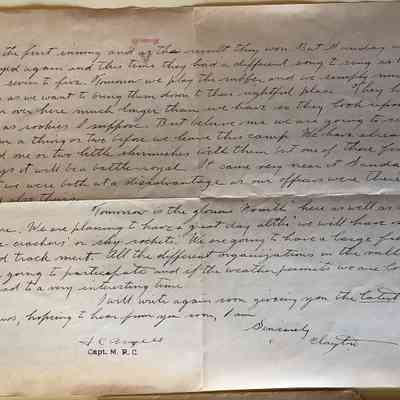 the first inning and as the result they won. But Sunday we
played again and this time they had a different song to sing as it
seven to five. Tomorrow we play the and we simply must
as we want to bring them down to their rightful place. They have
over here much longer than we have so they look upon
as rookies I suppose. But believe me we are going to
a thing or two before we leave this camp. We have already
had one or two little skirmishes with them but one of these fine
it will be a battle-royal. It came very near it Sunday
we were both at a disadvantage as our officers were there
Tomorrow is the glorious "Fourth" here as well as
We are planning to have a great day altho' we will have no
crackers' or sky rockets. We are going to have a large field
and track meet. All the different organizations in the
going to participate and if the weather permits we are
to a very interesting time.
I will write again soon giving you the latest
hoping to hear from you soon, I am
Sincerely
Clayton
Capt. M. R. C.